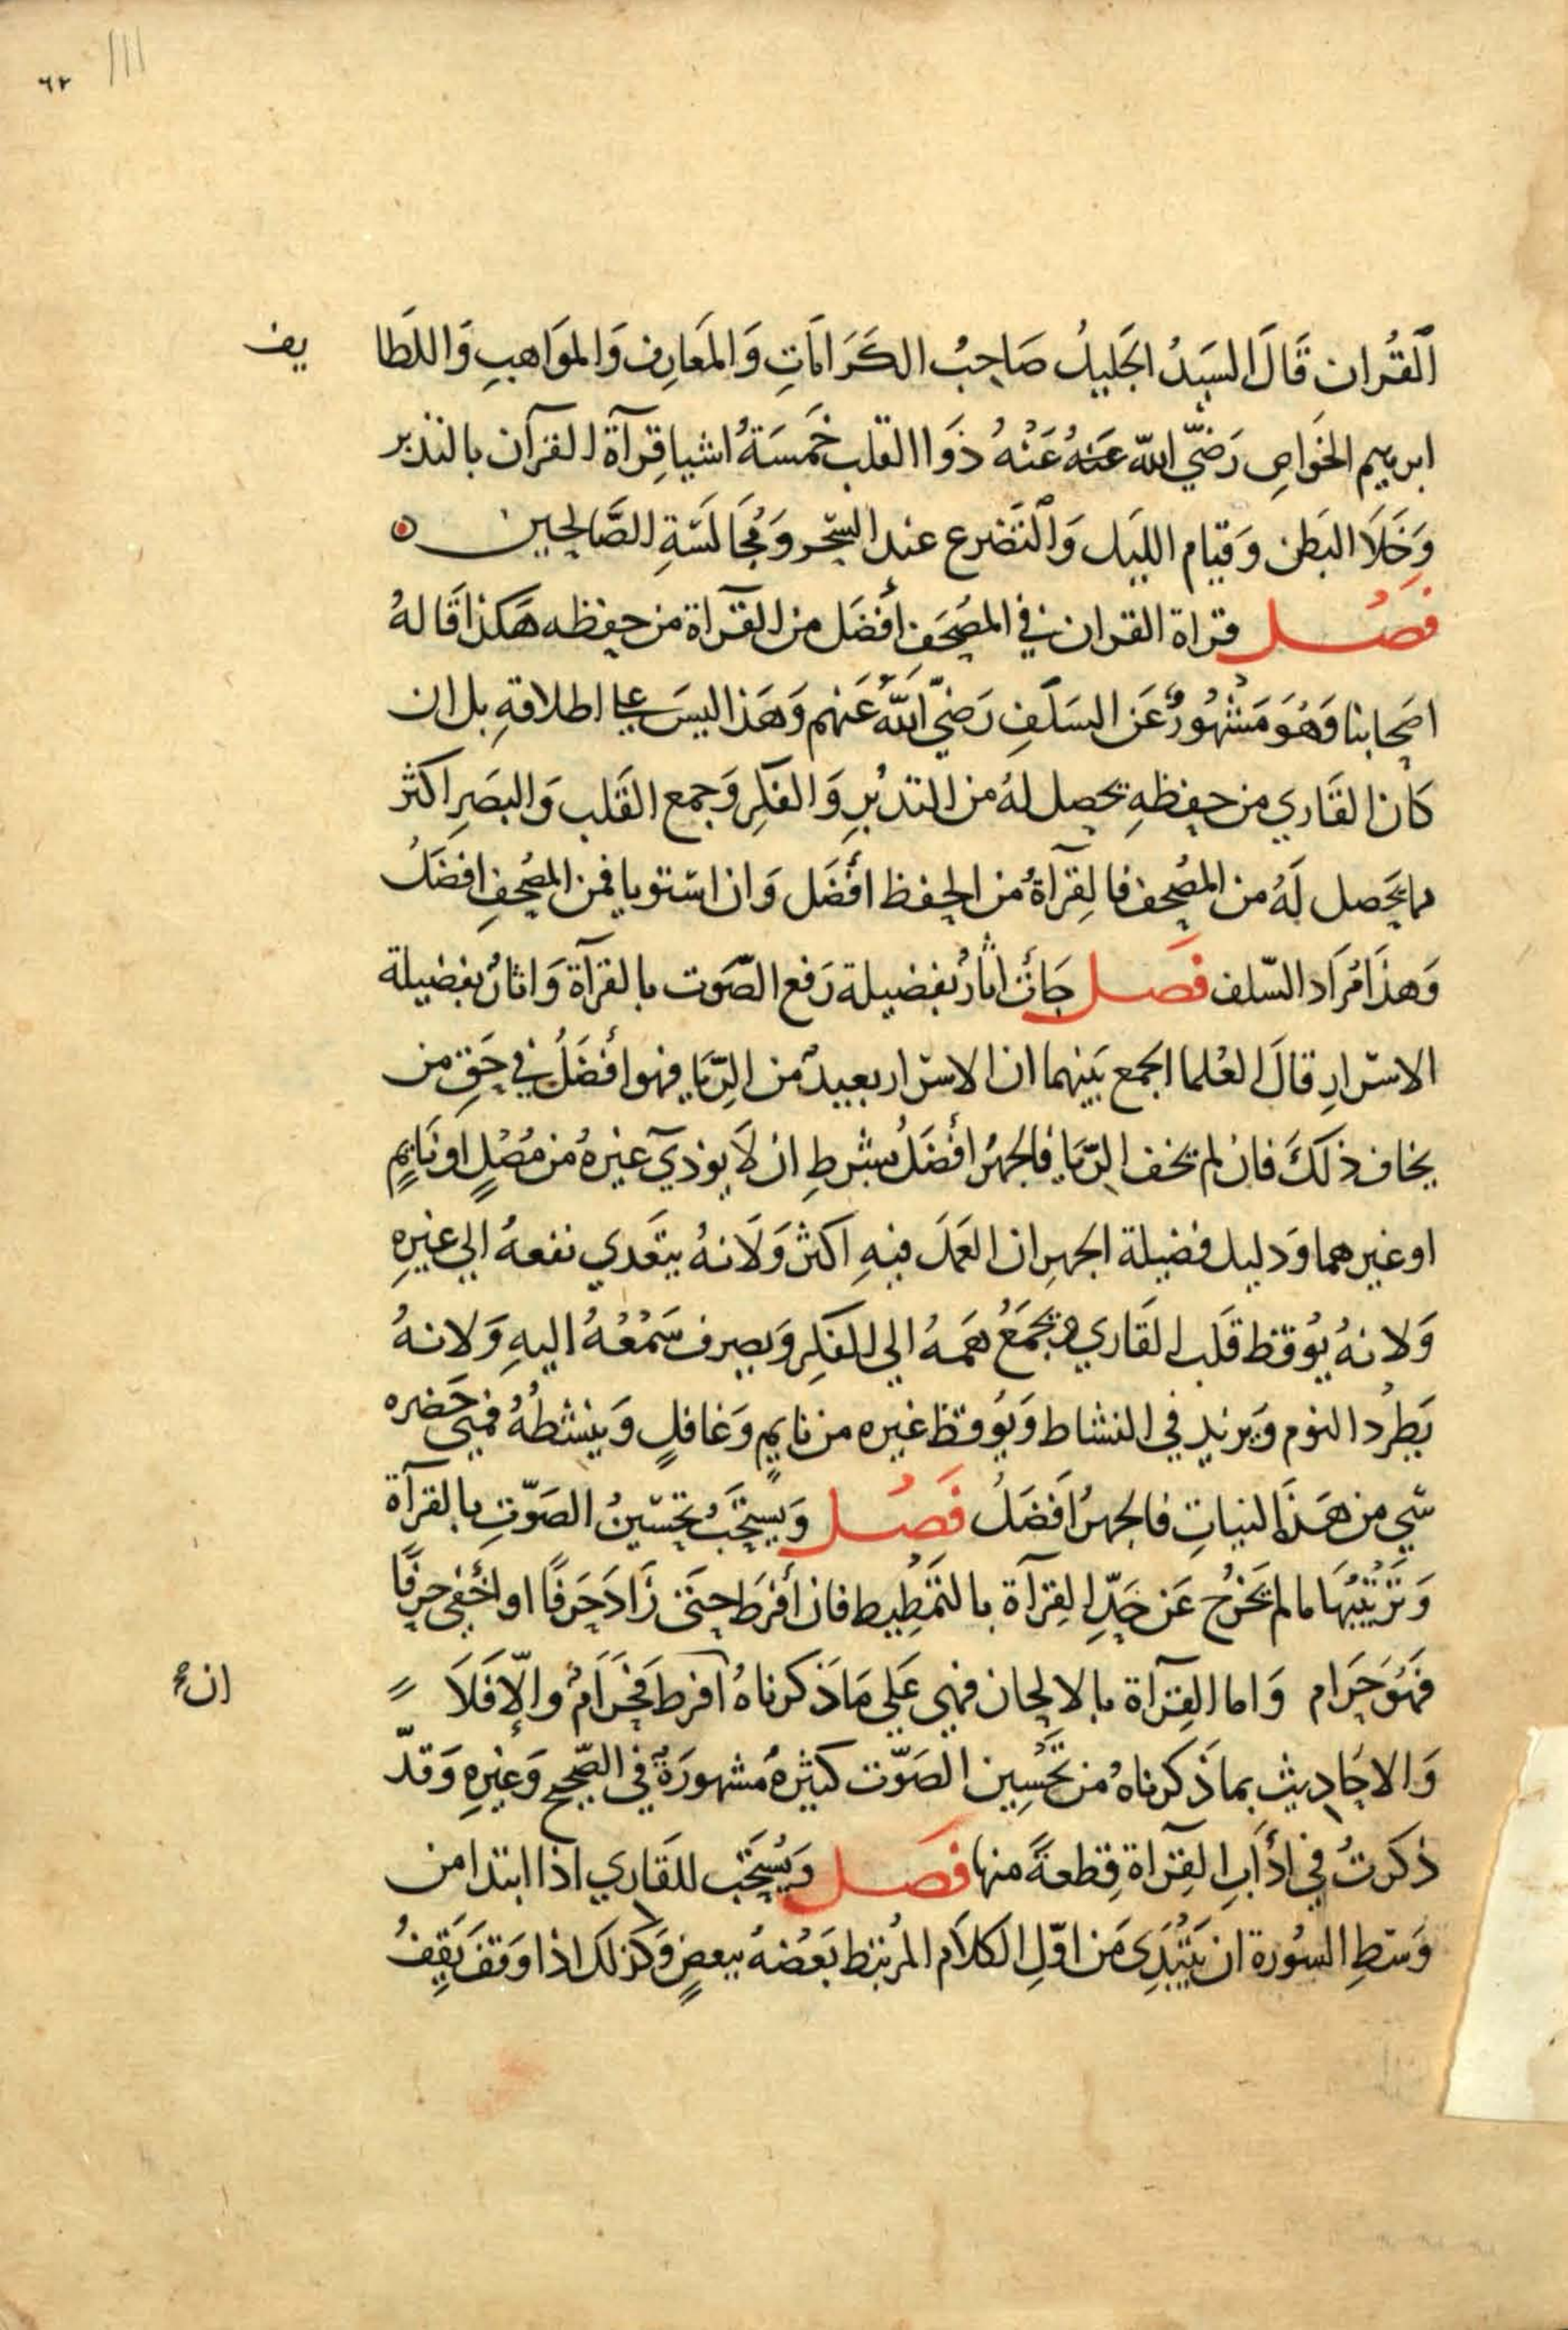 ٦٢
القُران قَالَ السَيدُ الجَليلُ صَاحِبُ الكَرَامَاتِ وَالمَعارِف وَالموَاهبِ وَاللطَا يف
ابرهيم الخوَاصِ رَضيَّ اللّه عَنهُ عَنْهُ دَوَا القلب خَمسَةُ اشيا قِرآة القرآن بالتدبر
وَخَلَا البَطن وَقيام الليَل وَالتَضرع عند السّحر وَمُجَالَسَةِ الصَّالحين
فصُل قراة القران في المصُحَف أفضَل من القرآة من حفظه هَكذا قَالهُ
اصَحابنا وَهُوَ مَشهُورٌ عَن السَلَفِ رَضيَّ اَللّهُ عَنهم وَهَذا ليسَ علي اطلاقهِ بل ان
كَان القَاري من حفظهِ يحصل لهُ من التدبُرِ وَالفكرِ وَجمع القَلب وَالبصَرِ اكثر
مما يَحصل لَهُ من المصُحف فالقِرآةُ من الحفظ أفضَل وَان استويا فمن المصُحفِ افضَلُ
وَهذَا مُرَاد السّلف فصَل جَأت اثارُ بفضيلة رَفع الصّوَت بالقرآة وَاثارُ بفضيلة
الاسرَارِ قالَ العُلما الجمع بَينهما ان الاسرَار بعيدٌ من الرِّيَا فهو أفضَلُ في حَقِ من
يخاف ذلكَ فان لم يخف الرِّيَا فالجهرُ أفضَلُ بشرطِ ان لَا يوذي غيرهُ من مُصَلٍ او نَايمٍ
او غيرهما وَدليل فضيلة الجهرِ ان العَمَل فيهِ اكثر وَلانهُ يتَعدي نفعهُ الي غيرِهِ
وَلانهُ يُوقظ قَلب القَاري وَيجَمَعُ هَمهُ الي الفكِر وَيصرف سَمْعُهُ اليهِ وَلانهُ
يَطرُد النوم وَيزيد في النشاط وَيُوقظ غيره من نايمٍ وَغافلٍ وَينشطُهُ فمتي حَضره
شي من هَذَا النياتِ فالجهرُ افَضَلُ فصُل وَيستحَبُ تحسّينُ الصَوّتِ بالقرآة
وَتَزْيينُهَا ما لم يَخرُج عَن حَدِّ القِرآة بالتَمْطِيط فان أفرَط حتَى زَادَ حَرفًا او اخُفي حرفًا
فَهُوَ حَرَام وَاما القِرآة بالالحان فهي عَلي مَا ذَكرناهُ افرط فَحَرَامٌ وإلّا فَلاَ
ان
وَالاحَاديث بما ذَكرناهُ من تَحْسِين الصَوّت كثيرهُ مَشهورَةٌ في الصّحيح وَغيرهِ وَقدّ
ذكرتُ في ادَابِ القِرَاة قِطعةً منها فصَل وَيُستحَب للقَاري اذا ابتدا من
وَسَطِ السُورة ان يَبْتَدِى مَن اوّلِ الكلاَم المرُتبط بَعضهُ ببعضٍ وَكَذلك اذا وَقفَ يَقِفُ